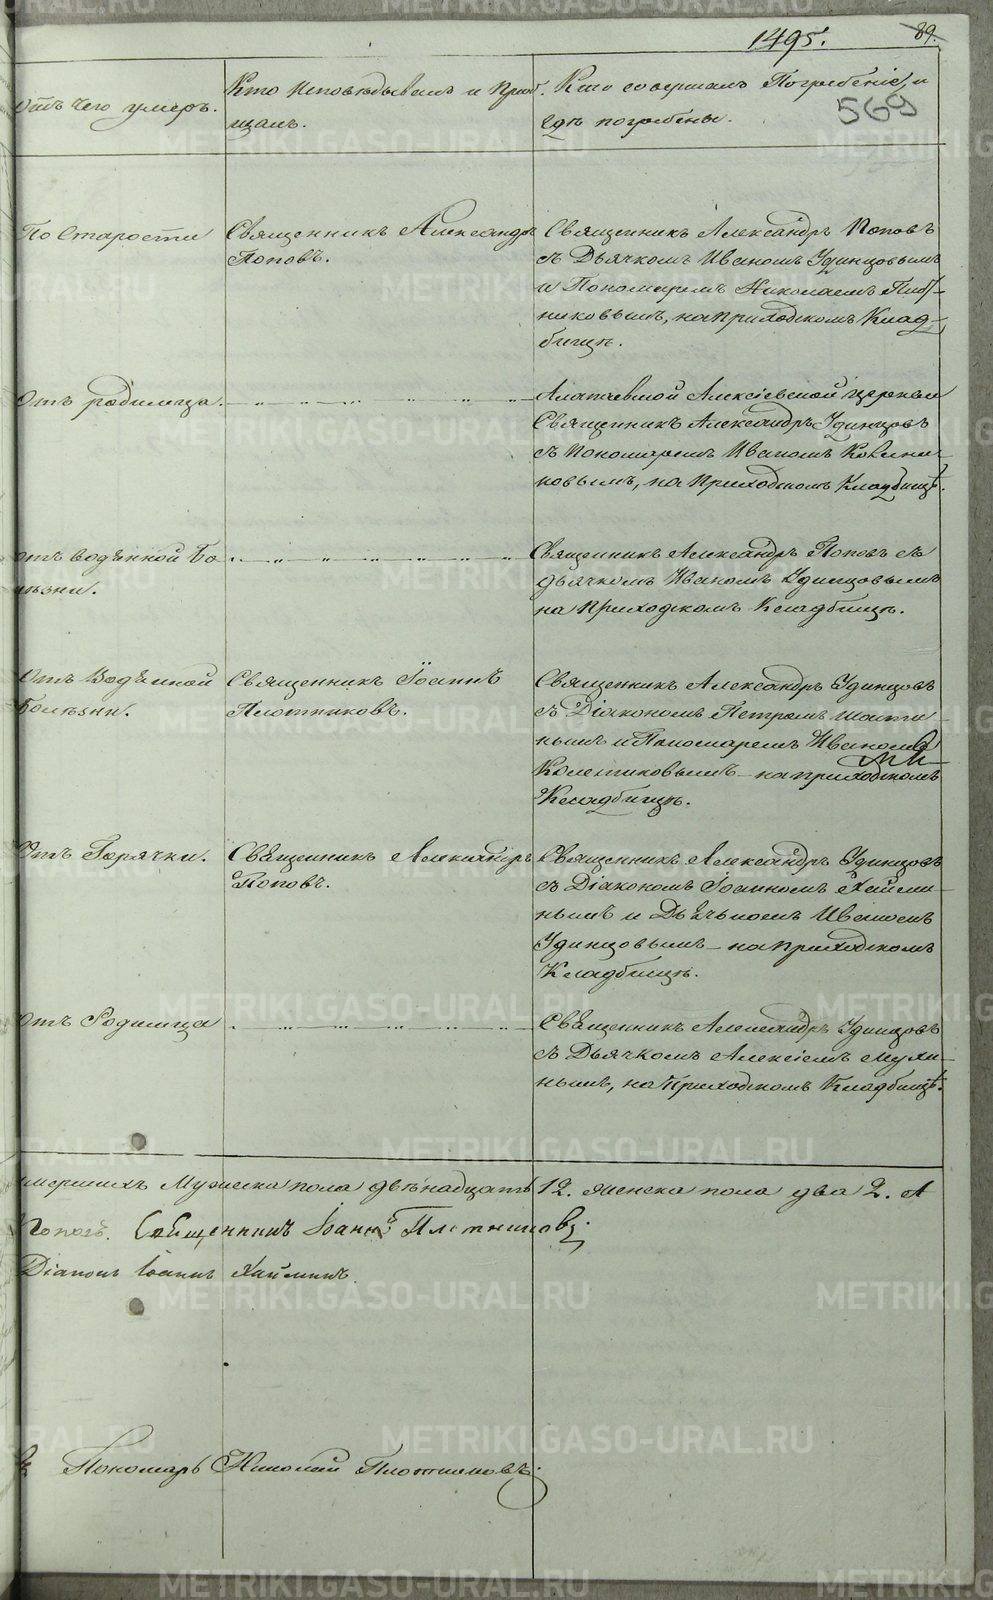 1495.
89.
569
Отъ чего умеръ.
Кто исповѣдывалъ и Пріоб-
щалъ.
Кто совершалъ Погребеніе, и
гдѣ погребены.
По Старости
Священникъ Александръ
Поповъ.
Священникъ Александръ Поповъ
съ Дьячкомъ Иваномъ Удинцовымъ
и Пономаремъ Николаемъ Плот-
никовымъ, на приходскомъ Клад-
бищѣ.
Отъ родимца.
Алапаевской Алексіевской церкви
Священникъ Александръ Удинцовъ
съ Пономаремъ Иваномъ
ковымъ, на Приходскомъ Кладбищѣ.
отъ водянной Бо-
лѣзни.
Священникъ Александръ Поповъ съ
дьячкомъ Иваномъ Удинцовымъ
на Приходскомъ Кладбищѣ.
Отъ Водянной
Болѣзни.
Священникъ Іоаннъ
Плотниковъ.
Священникъ Александръ Удинцовъ
съ Діакономъ Петромъ
нымъ и Пономаремъ Иваномъ
на приходскомъ
Кладбищѣ.
Отъ Горячки.
Священникъ Александръ
Поповъ.
Священникъ Александръ Удинцовъ
съ Діакономъ Іоанномъ Хайми-
нымъ и Дьячькомъ Иваномъ
Удинцовымъ на приходскомъ
Кладбищѣ.
Отъ Родимца
Священникъ Александръ Удинцовъ
съ Дьячкомъ Алексіемъ Мухи-
нымъ, на Приходскомъ Кладбищѣ.
умершихъ Мужеска пола двѣнадцать 12. женска пола два 2. А
Поповъ. Священникъ Іоаннъ Плотниковъ.
Діаконъ Іоаннъ Хайминъ.
Пономарь Николай Плотниковъ.
METRIKI.GASO-URAL.RU